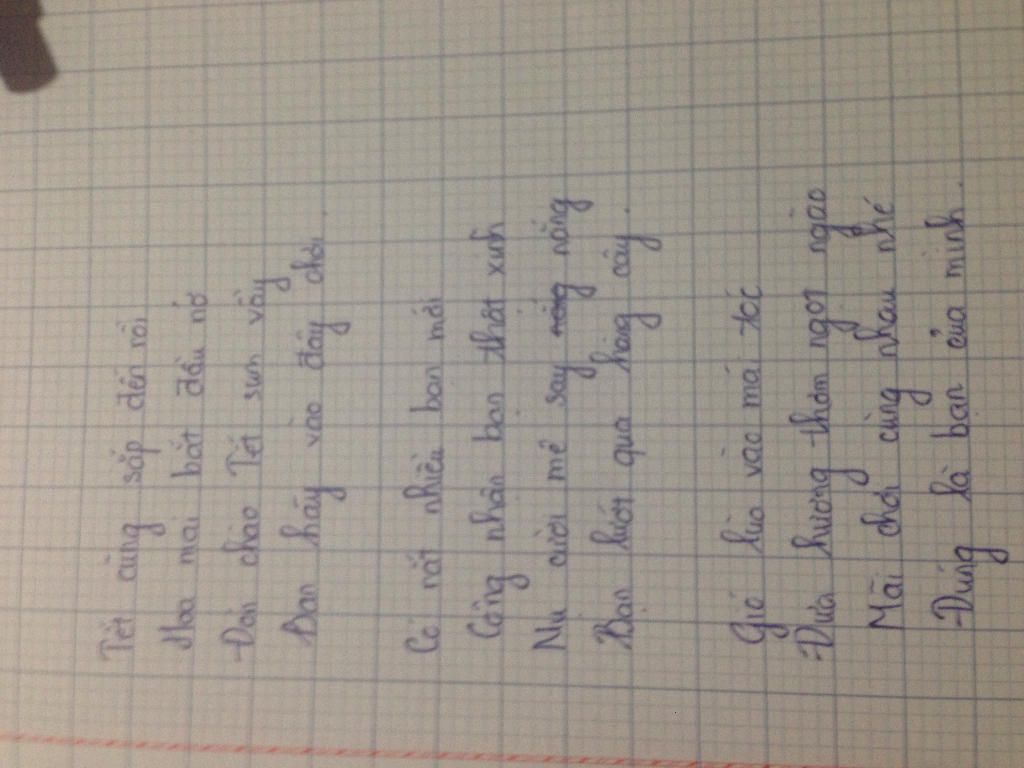 Tết cũng sắp đến rồi
Hoa mai bắt đầu nở
Đón chào Tết sum vầy
Bạn hãy vào đây chơi.
Có rất nhiều bạn mới
Công nhận bạn thật xinh
Nụ cười mê say nắng
Bạn lướt qua hàng cây.
Gió lùa vào mái tóc
Đưa hương thơm ngọt ngào
Mãi chơi cùng nhau nhé
Đúng là bạn của mình.